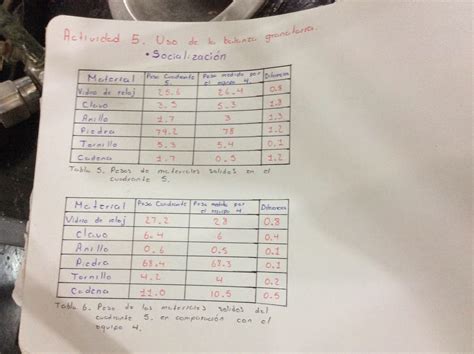 Actividad 5. Uso de la balanza granataria.
• Socialización
Material Peso Cuadrante 5. Peso medido por el equipo 4. Diferencia
Vidrio de reloj 25.6 26.4 0.8
Clavo 5.3 1.8
Anillo 1.7 3 1.3
Piedra 79.2 78 1.2
Tornillo 5.3 5.4 0.1
Cadena 1.7 0.5 1.2
Tabla 5. Pesos de materiales solidos en el
cuadrante 5.
Material Peso Cuadrante Peso medido por el equipo 4 Diferencia
Vidrio de reloj 27.2 28 0.8
Clavo 6.4 6 0.4
Anillo 0.6 0.5 0.1
Piedra 68.4 68.3 0.1
Tornillo 4.2 4 0.2
Cadena 11.0 10.5 0.5
Tabla 6. Peso de los materiales solidos del
cuadrante 5. en comparación con el
equipo 4.